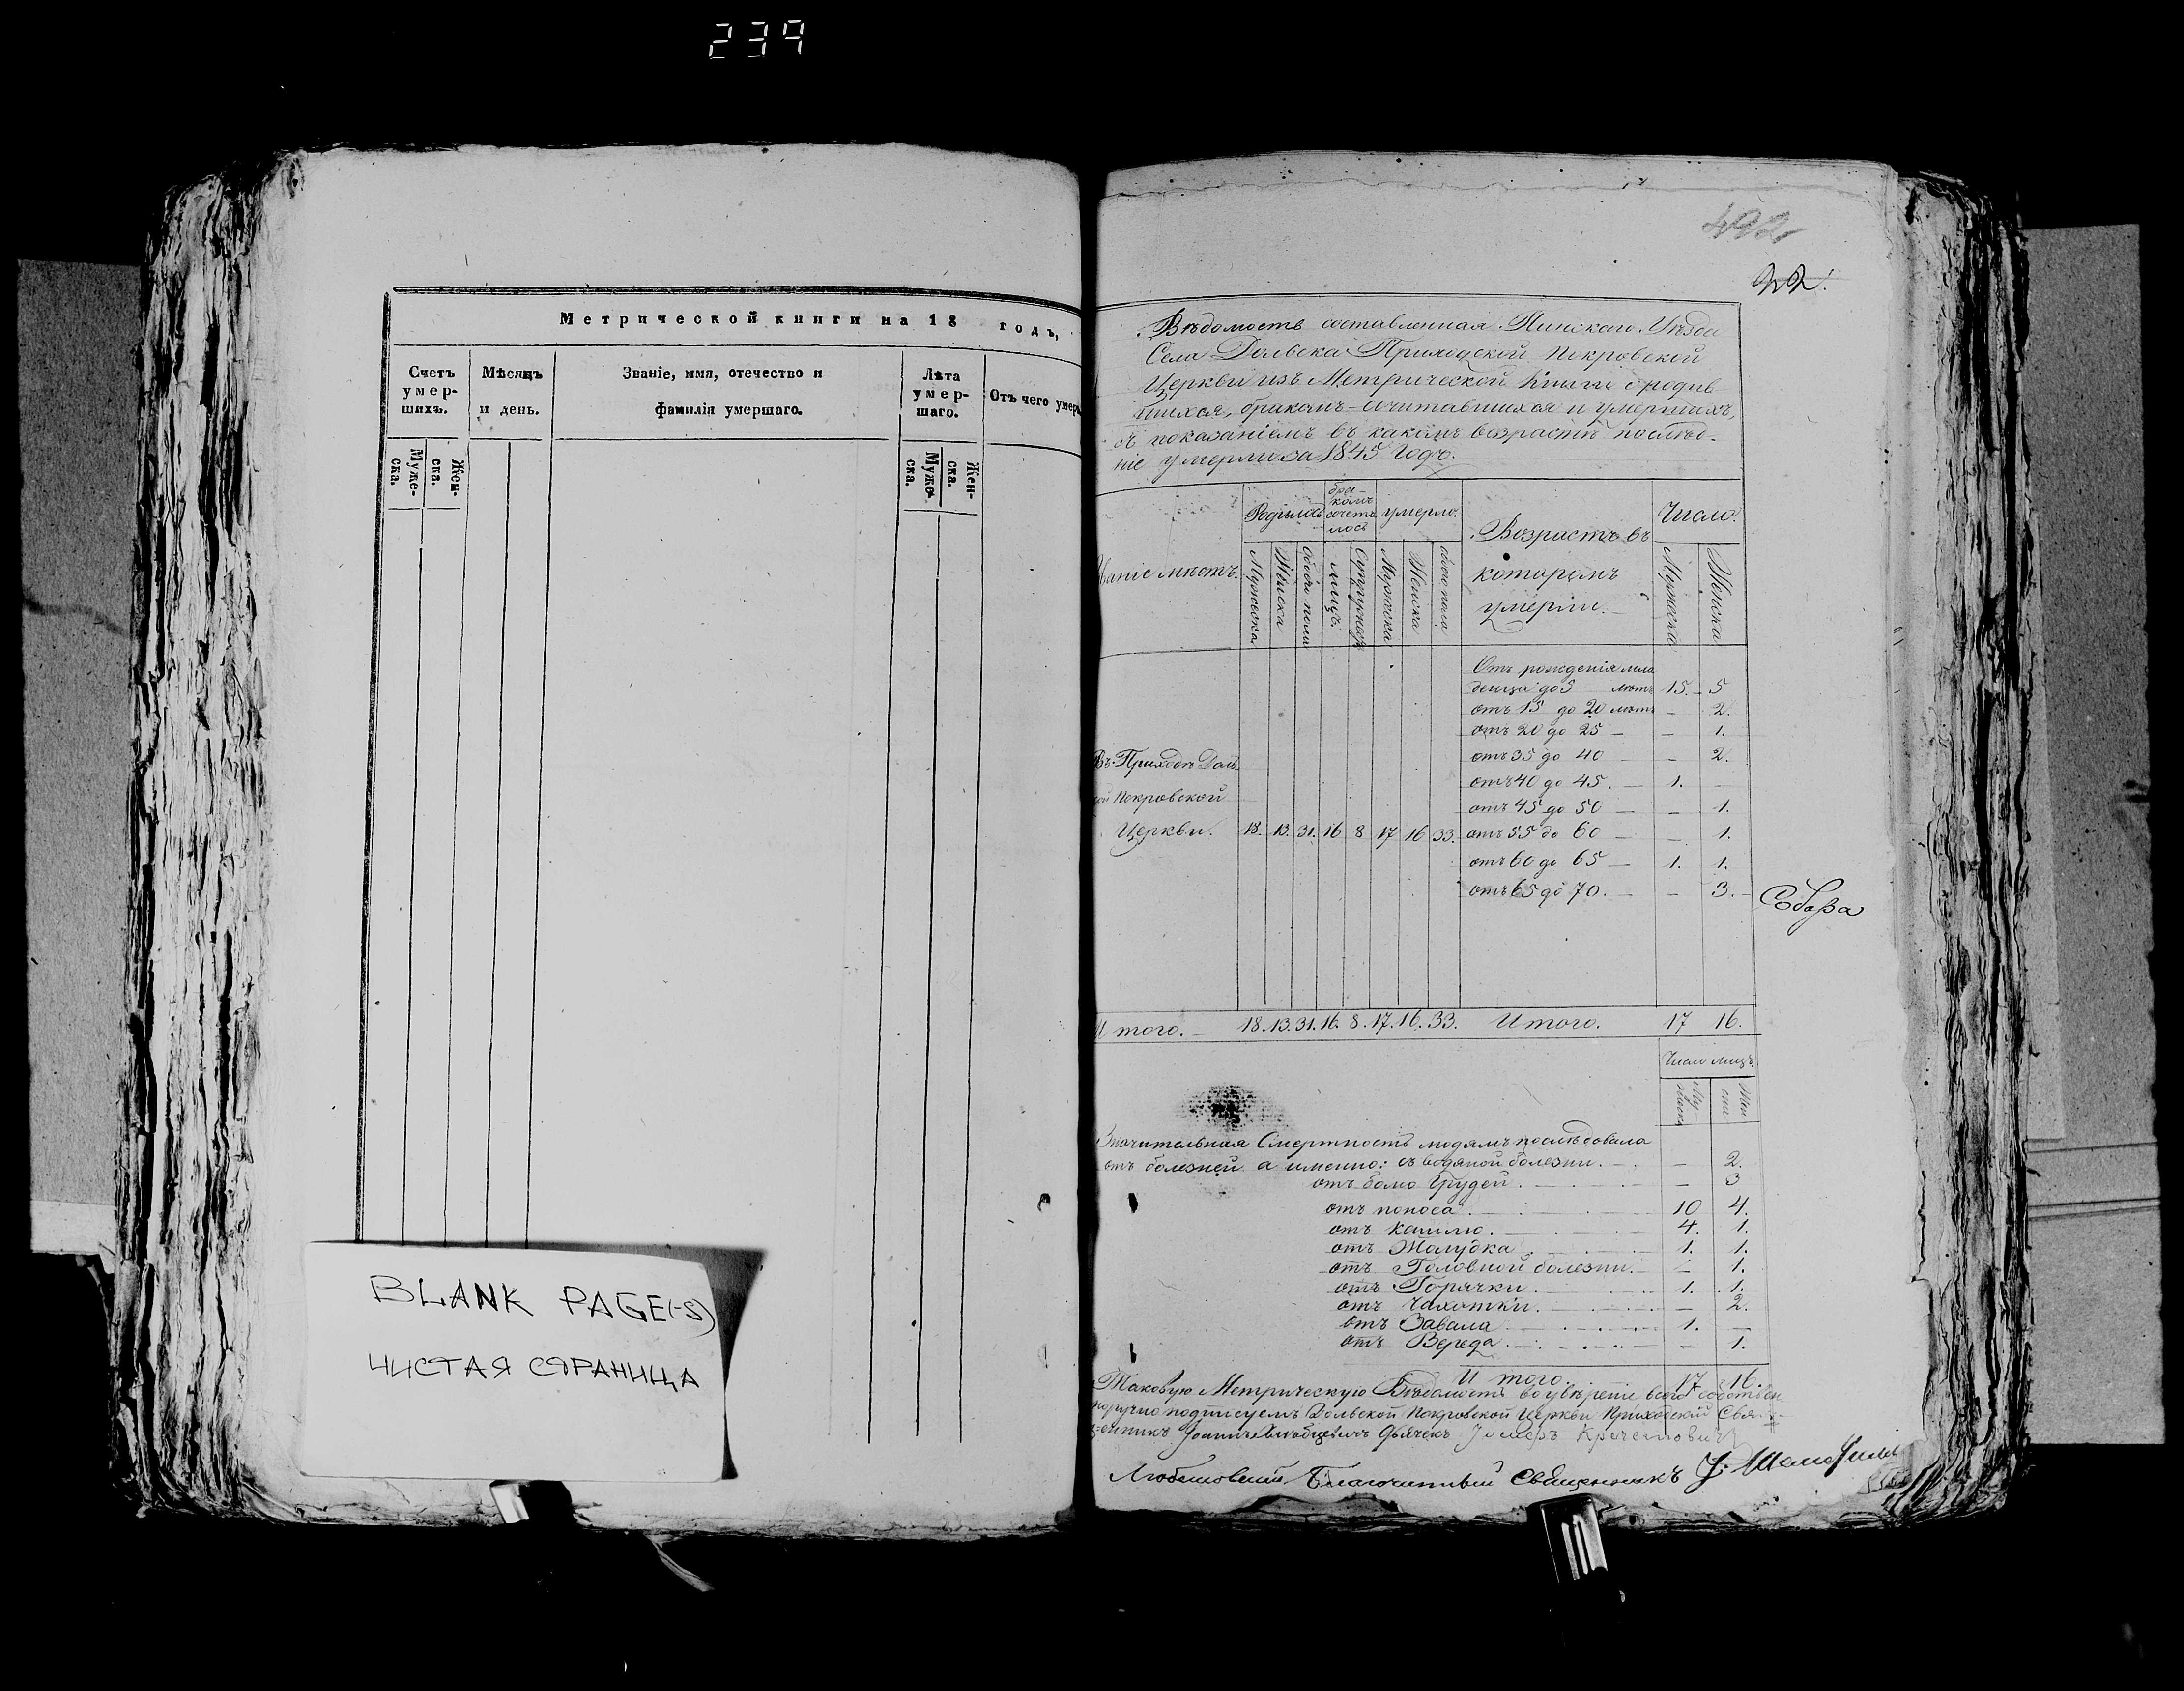 239
Метрической книги на 18 годъ,
Счетъ умер-шихъ.
Мѣсяцъ и день.
Званіе, имя, отечество и фамилія умершаго.
Лѣта умер-шаго.
Отъ чего умер
Муже-ска.
Жен-ска.
Муже-ска.
Жен-ска.
BLANK PAGE(-S)
ЧИСТАЯ СТРАНИЦА
492
22.
Вѣдомость составленная Пинскаго Уѣзда
Села Дольска Приходской Покровской
Церкви изъ Метрической Книги о родив
шихся, бракомъ-сочитавшихся и умершихъ,
съ показаніемъ въ какомъ возрастѣ послѣд-
ніе умерли за 1845 Годъ.
званіе мѣстъ.
Родилось
бра-комъ сочета лось
умерло.
Возрастъ въ которомъ умерли.
Число.
Мужеска
Женска
Обоего пола
лицъ.
Супружествъ
Мужеска
Женска
обоего пола
Мужеска
Женска
Отъ рожденія мла
денца до 5 лѣтъ 15. - 5
отъ 15 до 20 лѣтъ - 2.
отъ 20 до 25 - - 1.
отъ 35 до 40 - - 2.
отъ 40 до 45. - 1. -
отъ 45 до 50 - - 1.
отъ 55 до 60 - - 1.
отъ 60 до 65 - 1. 1.
отъ 65 до 70. - - 3.
Въ Приходѣ Доль
ской Покровской
Церкви. 18. 13. 31. 16 8 17 16 33.
Итого. - 18. 13. 31. 16. 8. 17. 16. 33. Итого. 17 16.
Число лицъ.
Му жеска
Жен ска
Значительная Смертность людямъ послѣдовала
отъ болезней а именно: съ водяной болезни. - - 2.
отъ боли Грудей. - - 3
отъ поноса. - 10 4.
отъ кашлю. - 4. 1.
отъ Желудка. - 1. 1.
отъ Головной болезни. - - 1.
отъ Горячки. - 1. 1.
отъ Чахотки. - - 2.
отъ Завала. - 1. -
отъ Вереда. - - 1.
Итого. 17 16.
Таковую Метрическую Вѣдомость во увѣреніе всего собствен
норучно подписуемъ Дольской Покровской Церкви Приходскій Свя-
щенникъ Іоаннъ Дьячекъ
Любешовскій Благочинный Священникъ